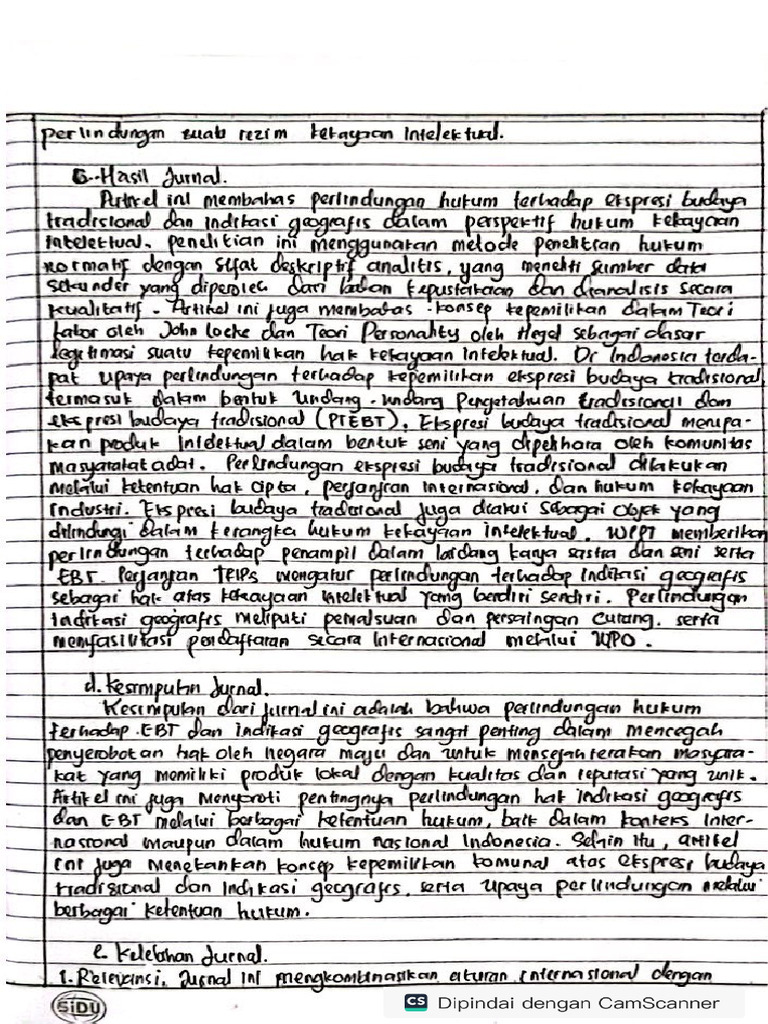 perlindungan suatu rezim kekayaan Intelektual.
c. Hasil Jurnal.
Artikel ini membahas perlindungan hukum terhadap ekspresi budaya
tradisional dan indikasi geografis dalam perspektif hukum kekayaan
intelektual. penelitian ini menggunakan metode penelitian hukum
normatif dengan sifat deskriptif analitis, yang meneliti sumber data
sekunder yang diperoleh dari bahan kepustakaan dan dianalisis secara
kualitatif. Artikel ini juga membahas konsep kepemilikan dalam Teori
labor oleh John Locke dan Teori Personality oleh Hegel sebagai dasar
legitimasi suatu kepemilikan hak kekayaan intelektual. Di Indonesia terda-
pat upaya perlindungan terhadap kepemilikan ekspresi budaya tradisional,
termasuk dalam bentuk undang-undang Pengetahuan tradisional dan
ekspresi budaya tradisional (PTEBT). Ekspresi budaya tradisional merupa-
kan produk intelektual dalam bentuk seni yang dipelihara oleh komunitas
masyarakat adat. Perlindungan ekspresi budaya tradisional dilakukan
melalui ketentuan hak cipta, perjanjian internasional, dan hukum kekayaan
industri. Ekspresi budaya tradisional juga diakui sebagai objek yang
dilindungi dalam kerangka hukum kekayaan intelektual. WPPT memberikan
perlindungan terhadap penampil dalam bidang karya sastra dan seni serta
EBT. Perjanjian TRIPs mengatur perlindungan terhadap indikasi geografis
sebagai hak atas kekayaan intelektual yang berdiri sendiri. Perlindungan
Indikasi geografis meliputi pemalsuan dan persaingan curang, serta
memfasilitasi pendaftaran secara Internasional melalui WPO.
d. Kesimpulan Jurnal.
Kesimpulan dari jurnal ini adalah bahwa perlindungan hukum
terhadap EBT dan indikasi geografis sangat penting dalam mencegah
penyerobotan hak oleh negara maju dan untuk mensejahterakan masyara-
kat yang memiliki produk lokal dengan kualitas dan reputasi yang unik.
Artikel ini juga menyoroti pentingnya perlindungan hak indikasi geografis
dan EBT melalui berbagai ketentuan hukum, baik dalam konteks inter-
nasional maupun dalam hukum nasional Indonesia. Selain itu, artikel
ini juga menekankan konsep kepemilikan komunal atas ekspresi budaya
tradisional dan Indikasi geografis, serta upaya perlindungan melalui
berbagai ketentuan hukum.
e. Kelebihan Jurnal.
1. Relevansi. Jurnal ini mengkombinasikan aturan internasional dengan
SiDU
CS Dipindai dengan CamScanner